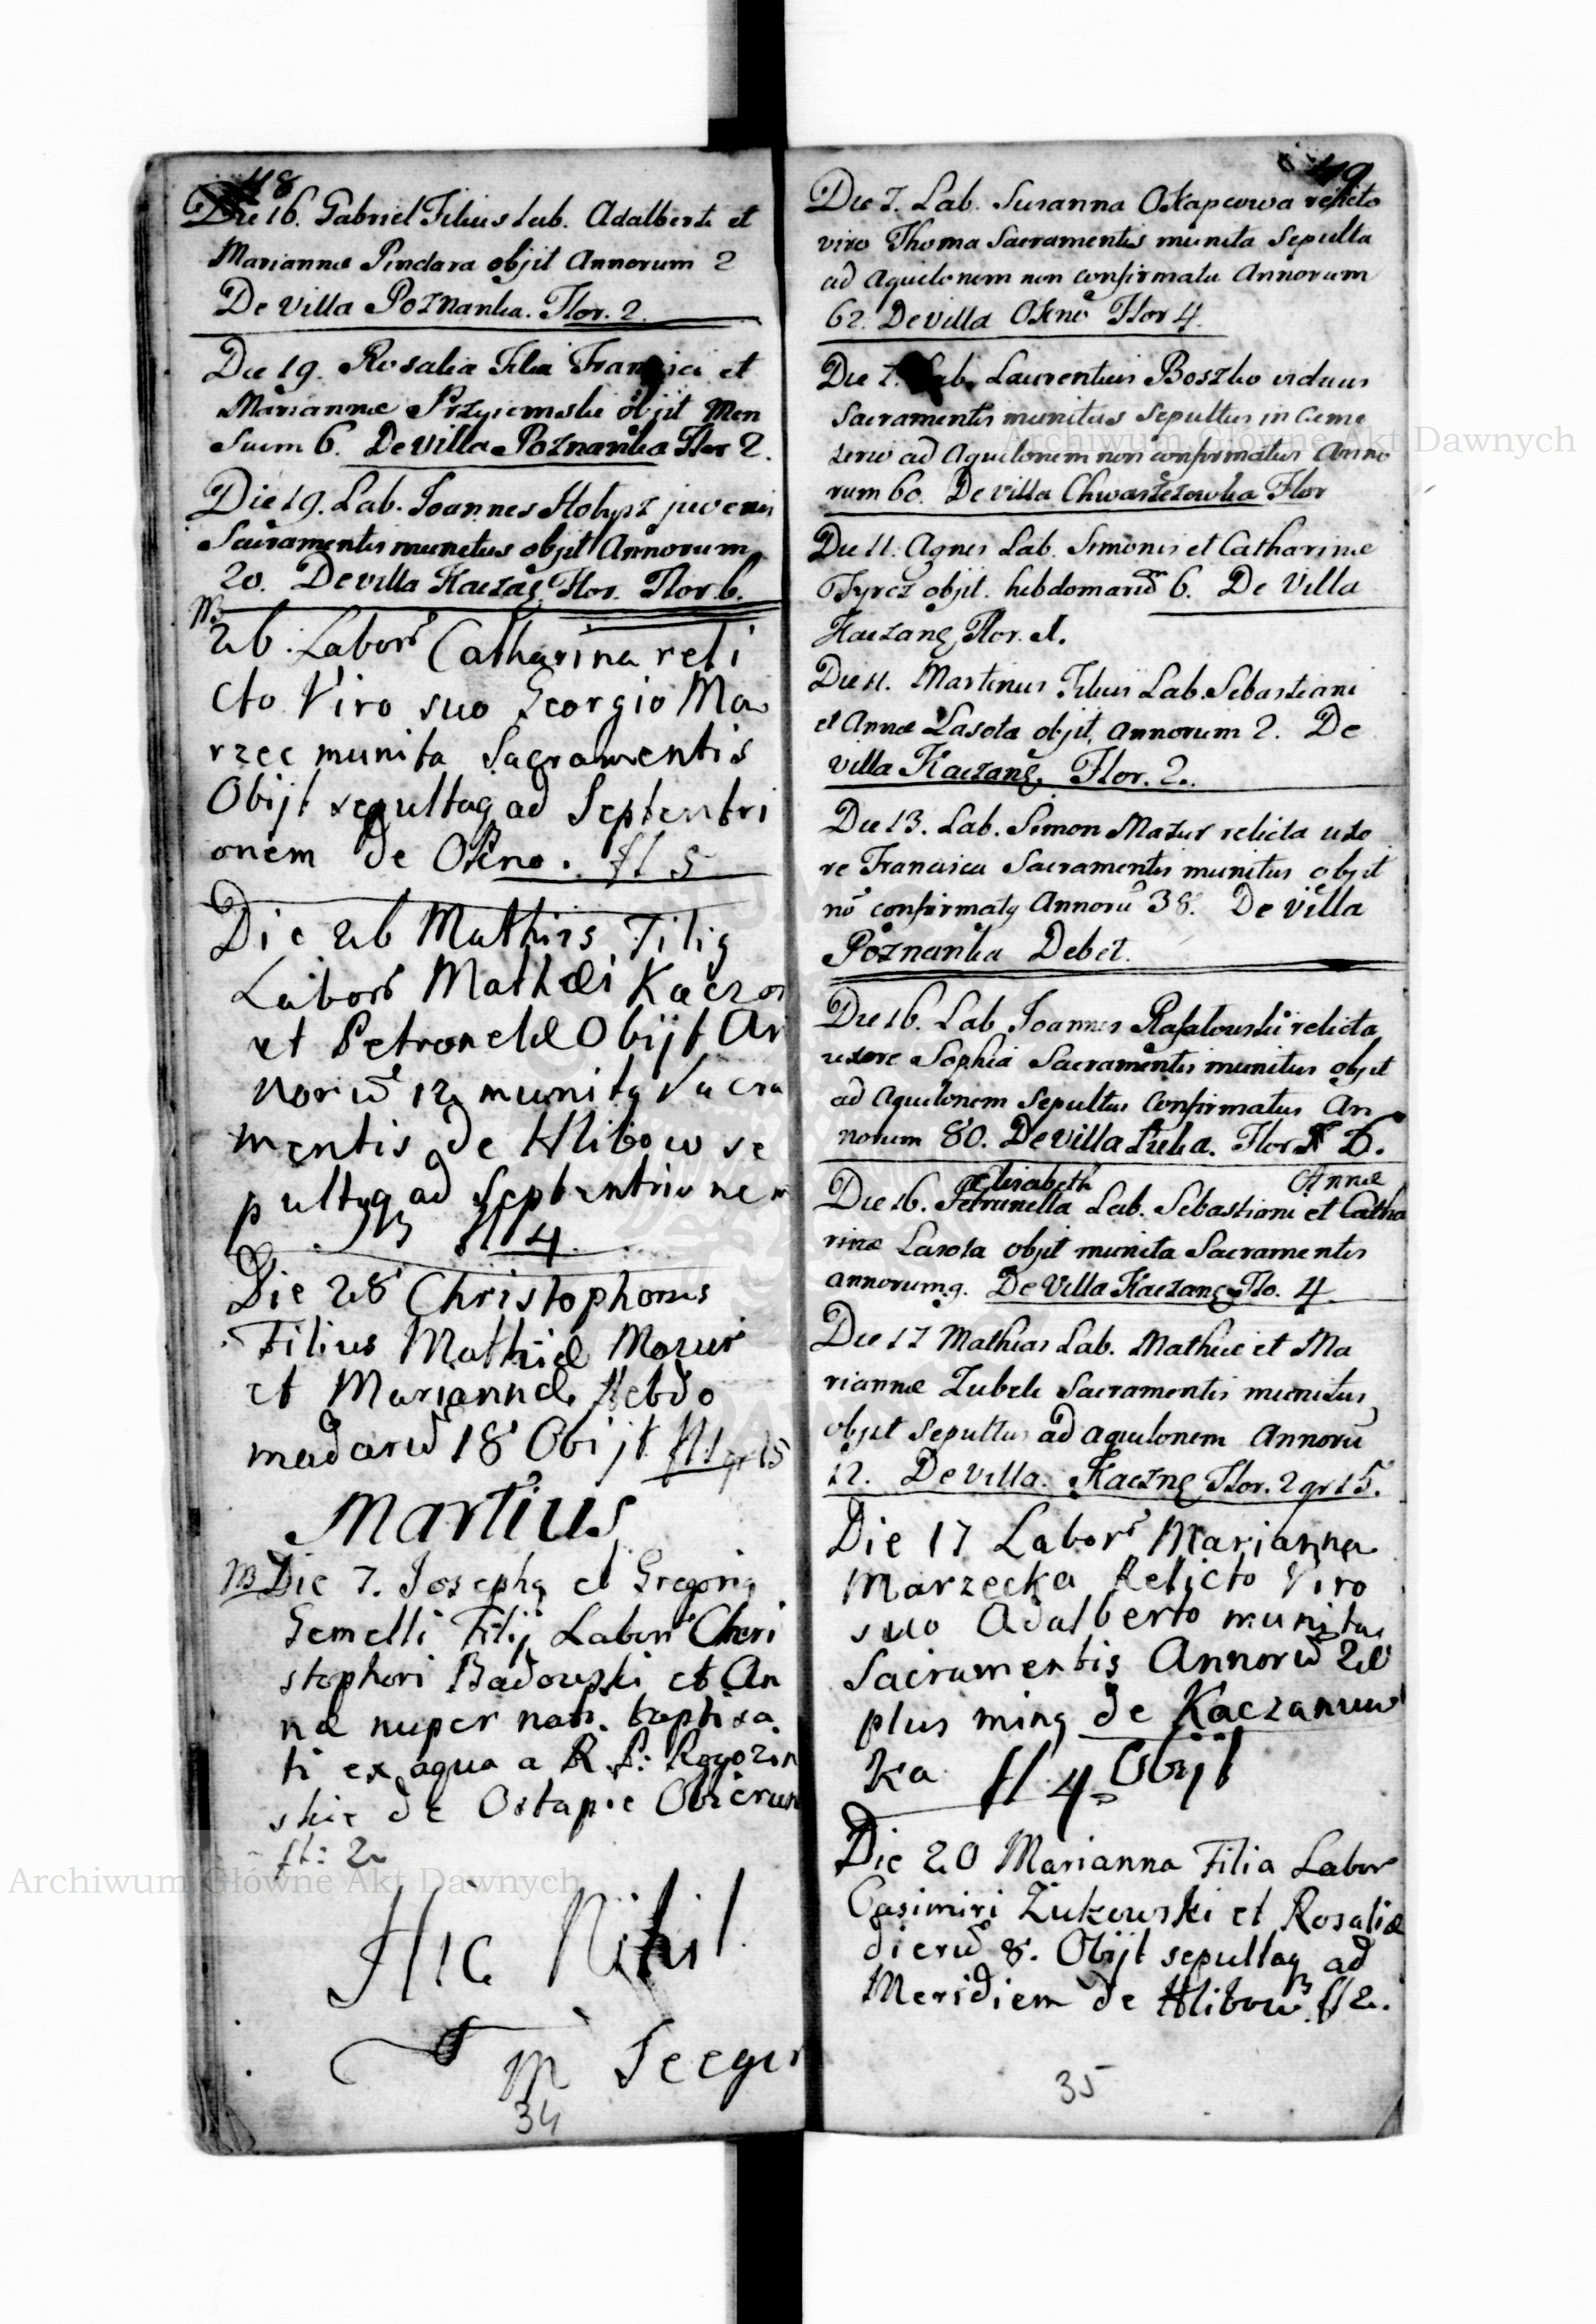 48
Die 16. Gabriel Filius Lab. Adalberti et
Mariannæ Pindara objit Annorum 2
De Villa Poznanka. Flor. 2.
Die 19. Rosalia Filia Francisci et
Mariannæ Przyiemska objit Men
sium 6. De Villa Poznanka Flor 2.
Die 19. Lab. Joannes juvenis
Sacramentis munitus objit Annorum
20. De villa Flor. Flor. 6.
26. Labors Catharina reli
cto Viro suo Georgio Ma
rzec munita Sacramentis
Obijt sepultaq ad Septentri
onem de Okno. fl 5
Die 26 Mathias Filiq
Labors Mathæi Kaczor
et Petronelæ Obijt An
noru 12 munitq Sacra
mentis de Hlibow se
pultqq ad Septentrionem
fl 4.
Die 28 Christophorus
Filius Mathiæ Mazur
et Mariannæ Hebdo
madaru 18 Obijt fl 1 gr 15
Martius
NB Die 7. Josephq et Gregoriq
Gemelli Filij Labors Chri
stophori Badowski et An
næ nuper nati. baptisa
ti ex aqua a R. P. Rogozin
skie de Ostapie Obierun
fl: 2
Hic Nihil
34
49
Die 7. Lab. Susanna Okapcowa relicto
viro Thoma Sacramentis munita Sepulta
ad Aquilonem non confirmata Annorum
62. De villa Okno Flor 4.
Die 7. Lab. Laurentius Boszko viduus
Sacramentis munitus Sepultus in Cæme
terio ad Aquilonem non confirmatus Anno
rum 60. De villa Chwastezowka Flor
Die 11. Agnes Lab. Simonis et Catharinæ
objit. hebdomarum 6. De Villa
Flor. 1.
Die 11. Martinus Filius Lab. Sebastiani
et Annæ Lasota objit, Annorum 2. De
villa Flor. 2.
Die 13. Lab. Simon Mazur relicta uxo
re Francisca Sacramentis munitus objit
no confirmatq Annoru 38. De villa
Poznanka Debet.
Die 16. Lab Joannes Rafalowski relicta
uxore Sophia Sacramentis munitus objit
ad Aquilonem Sepultus Confirmatus An
norum 80. De villa Luka. Flor 6.
Elisabeth Annæ
Die 16. Petrunella Lab. Sebastiani et Catha
rinæ Lasota objit munita Sacramentis
annorum 9. De Villa Flo. 4.
Die 17 Mathias Lab. Mathiæ et Ma
riannæ Sacramentis munitus
objit Sepultus ad aquilonem Annoru
12. De villa. Flor. 2 gr 15.
Die 17 Labors Marianna
Marzecka Relicto Viro
suo Adalberto munita
Sacramentis Annoru
plus minq de Kaczanuw
ka fl 4 Obijt
Die 20 Marianna Filia Labor
Casimiri Zukowski et Rosaliæ
dieru 8. Obijt sepultaq ad
Meridiem de Hlibow fl 2.
35
Archiwum Główne Akt Dawnych
Archiwum Główne Akt Dawnych